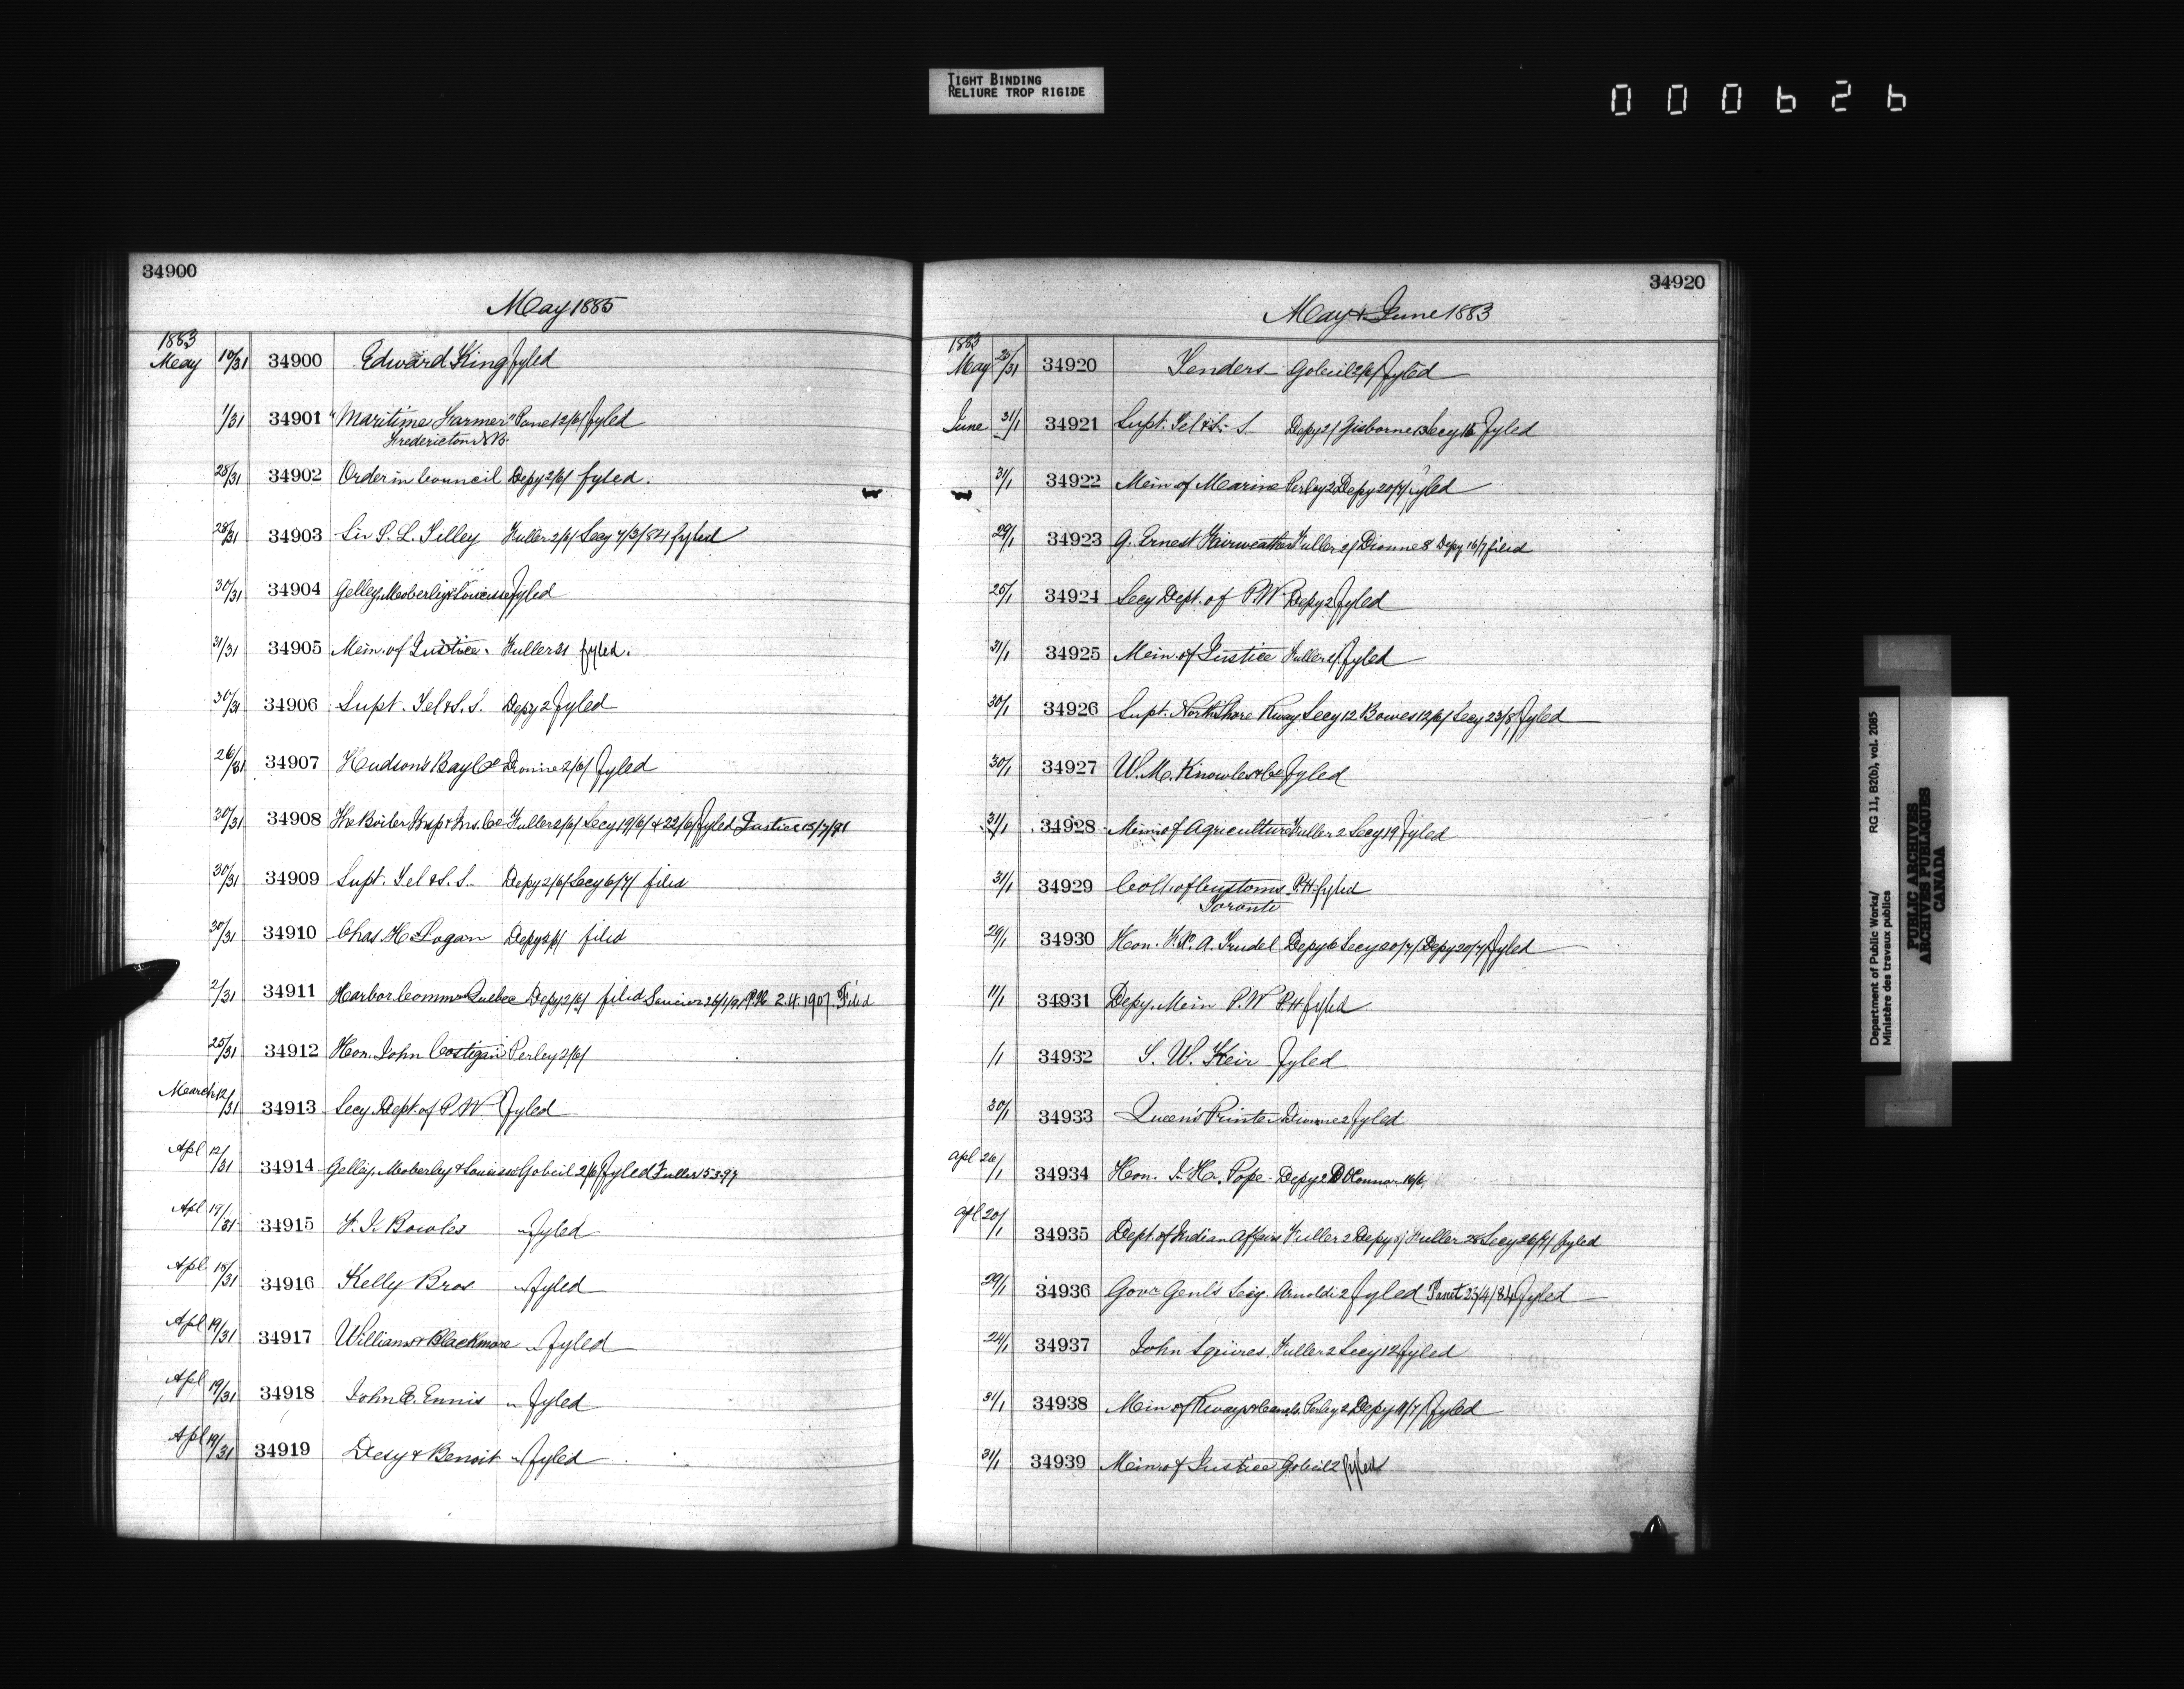 TIGHT BINDING
RELIURE TROP RIGIDE
000626
34900
May 1885
1883
May 10/31 34900 Edward King fyled
1/31 34901 "Maritime Farmer" Panet 2/6/ fyled
Fredericton N.B.
28/31 34902 Order in Council Depy 2/6/ fyled.
28/31 34903 Sir S. L. Tilley Fuller 2/6/ Secy 7/3/84 fyled
30/31 34904 Gelley, Moberley & Louisse fyled
31/31 34905 Min. of Justice. Fuller 21 fyled.
30/31 34906 Supt. Tel & S. S. Depy 2 fyled
26/31 34907 Hudson's Bay Co Dionne 2/6/ fyled
30/31 34908 The Boiler Insp & Ins. Co Fuller 2/6/ Secy 19/6/ & 22/6/ fyled Justice 15/7/91
30/31 34909 Supt. Tel & S. S. Depy 2/6/ Secy 6/7/ filed
30/31 34910 Chas H. Logan Depy 2/6/ filed
2/31 34911 Harbor Commrs Quebec Depy 2/6/ filed 2.4.1907. Filed
25/31 34912 Hon. John Costigan Perley 2/6/
March 12/31 34913 Secy Dept. of P.W fyled
Apl 12/31 34914 Gelley, Moberley & Louisse Gobeil 2/6/ fyled Fuller 15 3-97
Apl 19/31 34915 F. J. Bowles " fyled
Apl 18/31 34916 Kelly Bros " fyled
Apl 19/31 34917 Williams & Blackmore " fyled
Apl 19/31 34918 John C. Ennis " fyled
Apl 19/31 34919 Desy & Benoit " fyled
34920
May & June 1883
1883
May 25/31 34920 Tenders Gobeil 2/6/ fyled
June 31/1 34921 Supt. Tel & S. S. Depy 2/ Gisborne 13 Secy 15 fyled
31/1 34922 Min of Marine Perley 2 Depy 20/7/ fyled
29/1 34923 G. Ernest Fairweather Fuller 2/ Dionne 8 Depy 16/7 filed
25/1 34924 Secy Dept. of P.W Depy 2 fyled
31/1 34925 Min. of Justice Fuller 2/ fyled
30/1 34926 Supt. North Shore Rway Secy 12 Bowes 12/6/ Secy 23/8/ fyled
30/1 34927 W. M. Knowles & Co fyled
31/1 34928 Min of Agriculture Fuller 2 Secy 19 fyled
31/1 34929 Colt. of Customs P.H. fyled
Toronto
29/1 34930 Hon. F. X. A. Trudel Depy 6 Secy 20/7/ Depy 20/7/ fyled
11/1 34931 Depy. Min P.W P.H fyled
/1 34932 S. W. Keir fyled
30/1 34933 Queen's Printer Dionne 2 fyled
Apl 26/1 34934 Hon. J. H. Pope Depy 2 D O'Connor 16/6
Apl 20/1 34935 Dept. of Indian Affairs Fuller 2 Depy 5/ Fuller 28 Secy 26/7/ fyled
29/1 34936 Govr Genl's Secy. Arnoldi 2 fyled Panet 25/4/84 fyled
24/1 34937 John Squires Fuller 2 Secy 12 fyled
31/1 34938 Min of Rways & Canals. Perley 2 Depy 11/7/ fyled
31/1 34939 Min of Justice Gobeil 2 fyled
Department of Public Works/ RG 11, B2(b), vol. 2085
Ministère des travaux publics
PUBLIC ARCHIVES
ARCHIVES PUBLIQUES
CANADA